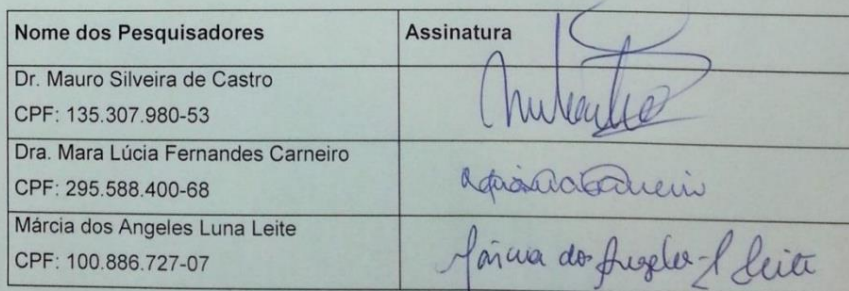 Nome dos Pesquisadores Assinatura
Dr. Mauro Silveira de Castro
CPF: 135.307.980-53
Dra. Mara Lúcia Fernandes Carneiro
CPF: 295.588.400-68
Márcia dos Angeles Luna Leite
CPF: 100.886.727-07
Márcia do Angeles L Leite